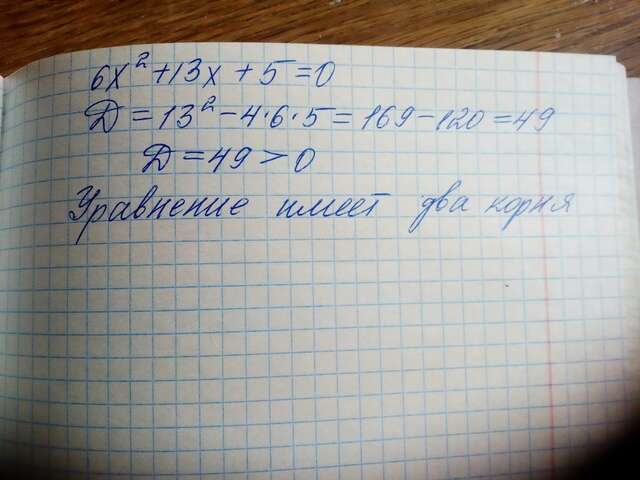 6x² + 13x + 5 = 0
D = 13² - 4·6·5 = 169 - 120 = 49
D = 49 > 0
Уравнение имеет два корня